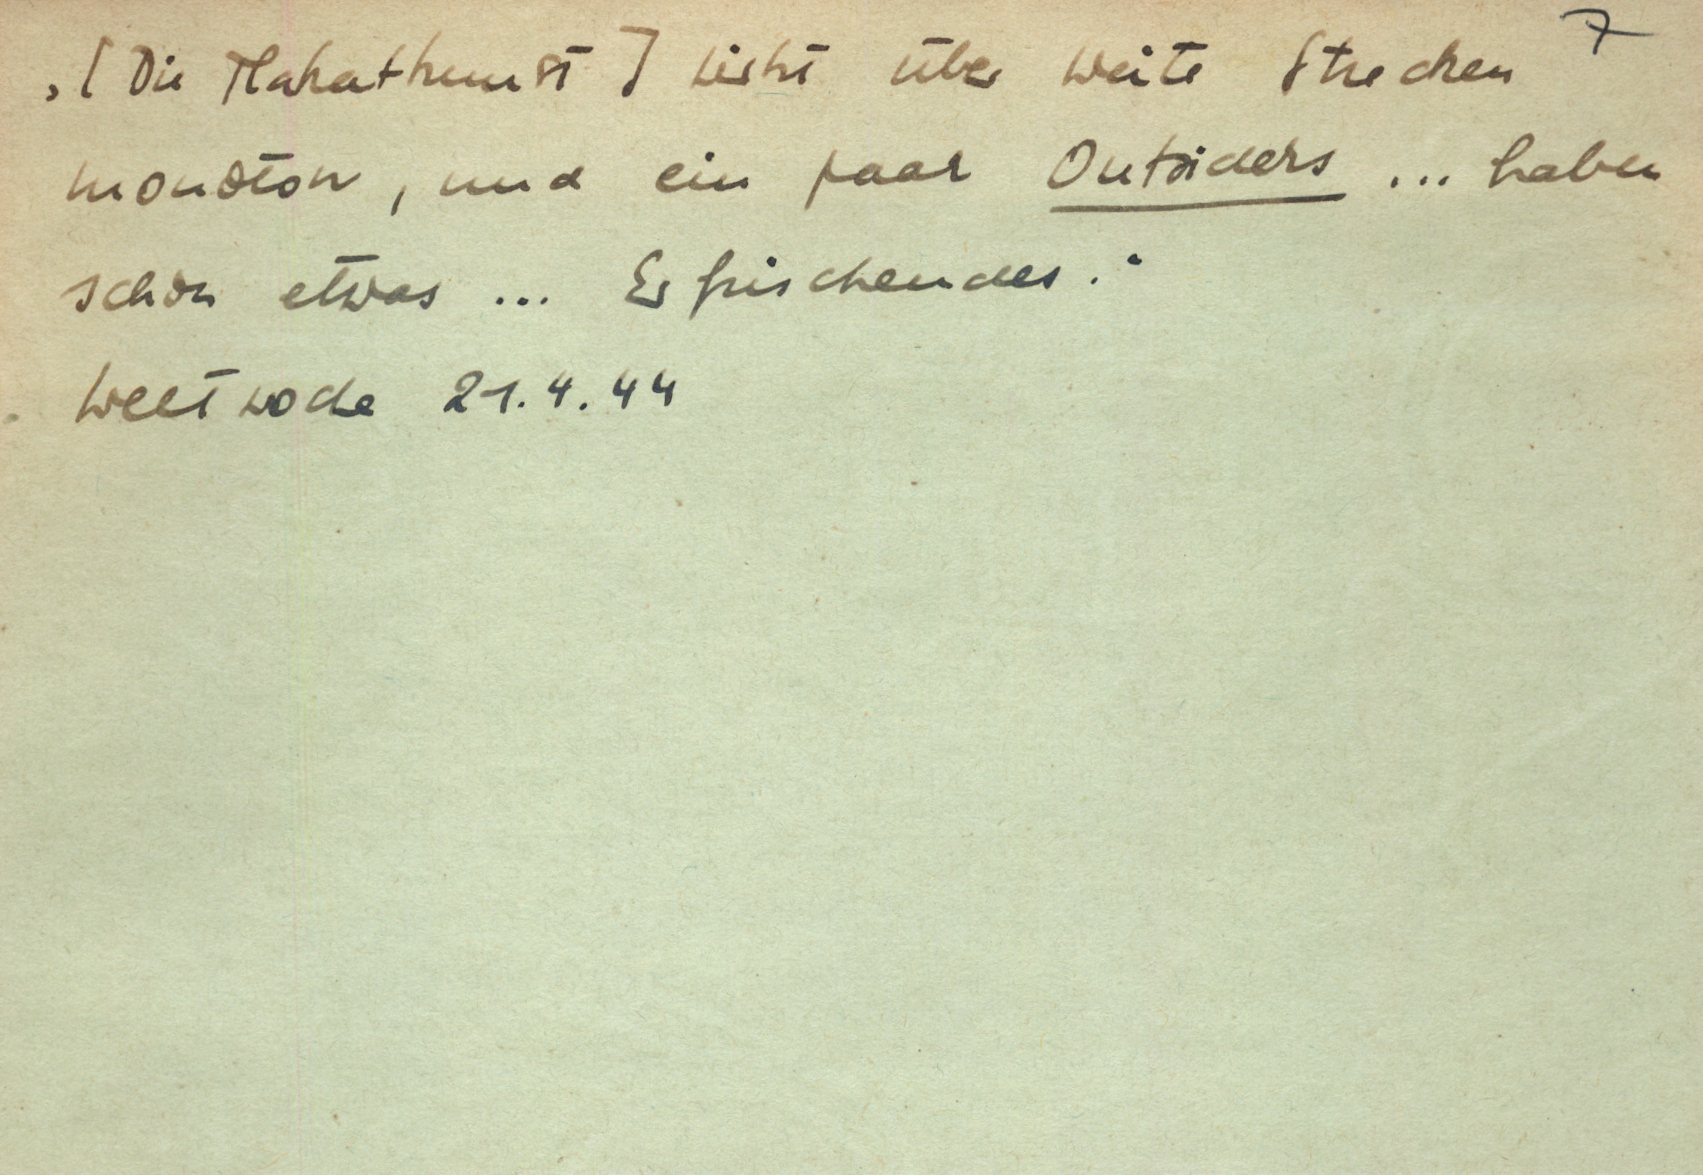 7
„[Die Malkunst] wirkt über weite Strecken
monoton, und ein paar Outsiders ... haben
schon etwas ... Erfrischendes."
Weltwoche 21.4.44